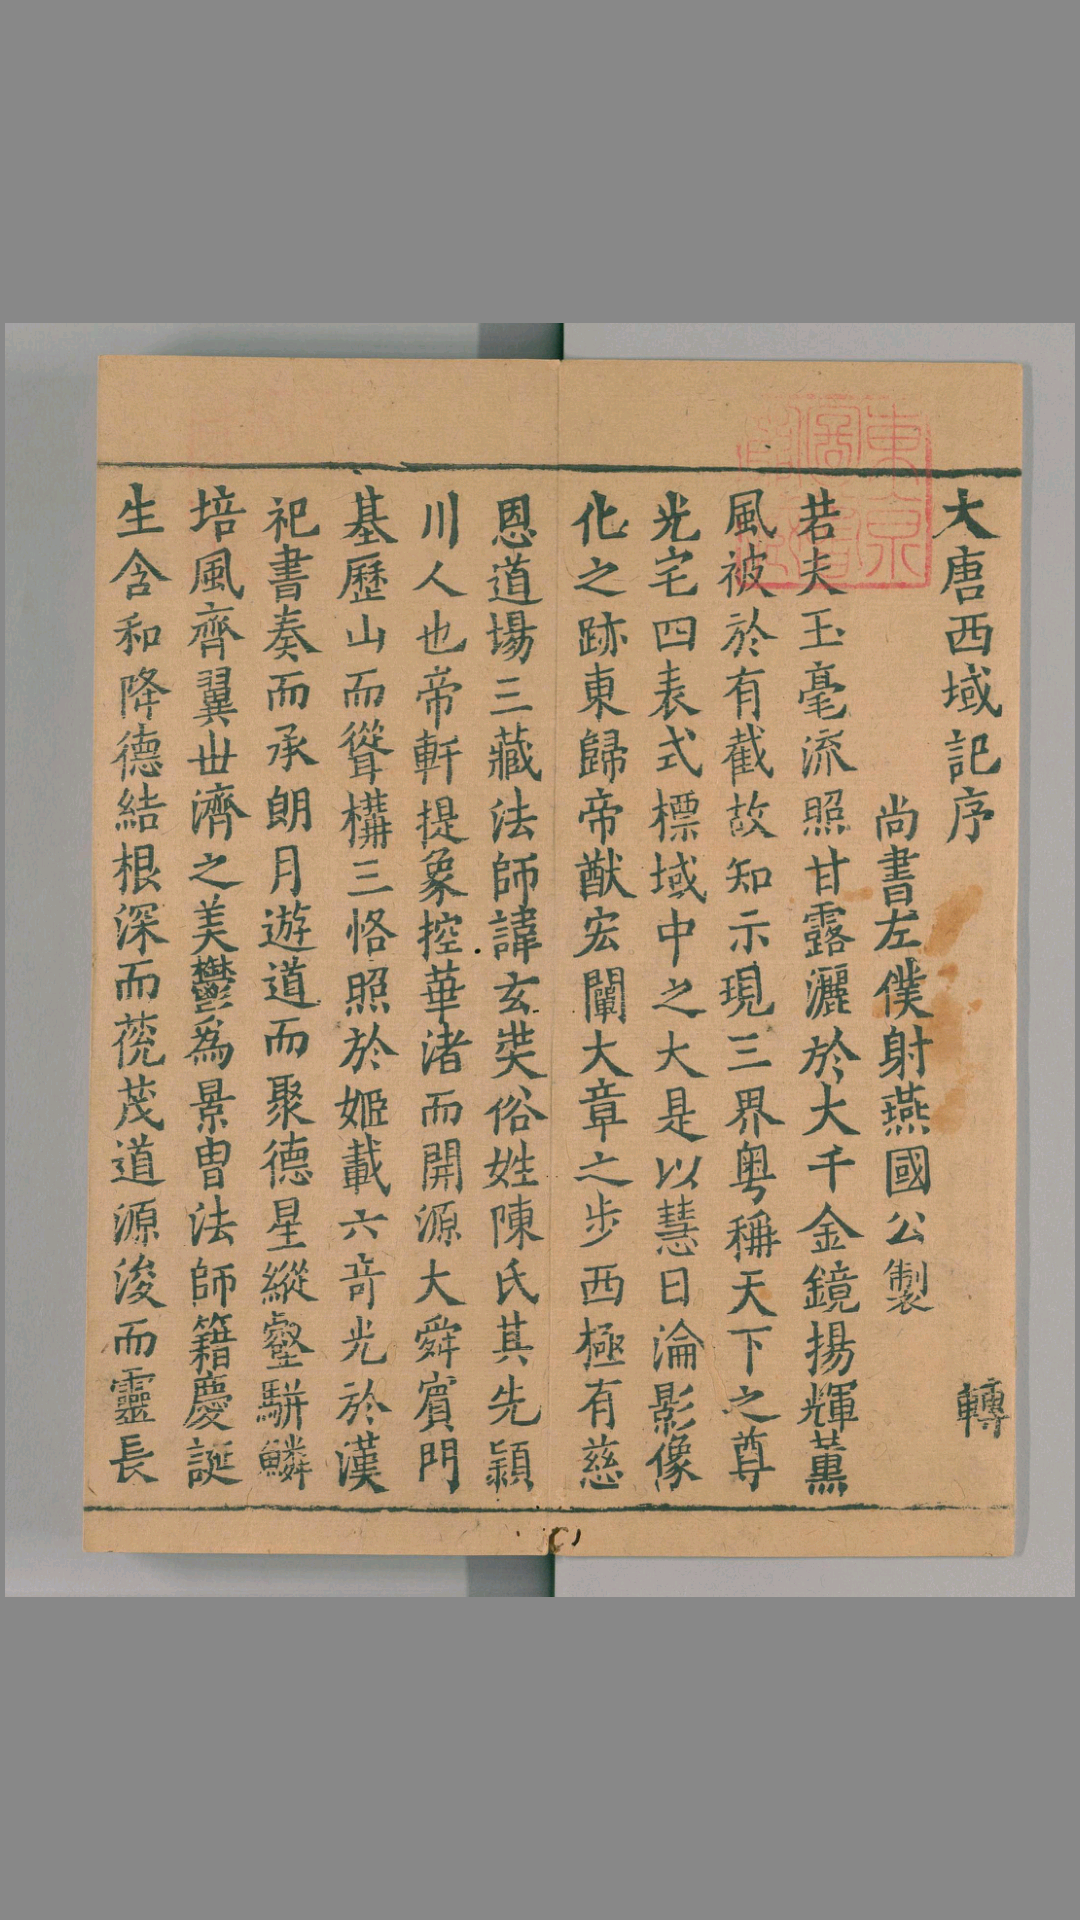 大唐西域記序
轉
尚書左僕射燕國公製
若夫玉毫流照甘露灑於大千金鏡揚輝薰
風被於有截故知示現三界粤稱天下之尊
光宅四表式標域中之大是以慧日淪影像
化之跡東歸帝猷宏闡大章之步西極有慈
恩道場三藏法師諱玄奘俗姓陳氏其先潁
川人也帝軒提象控華渚而開源大舜賓門
基歷山而聳構三恪照於姬載六奇光於漢
祀書奏而承朗月遊道而聚德星縱壑駢鱗
培風齊翼世濟之美鬱為景胄法師籍慶誕
生含和降德結根深而莸茂道源浚而靈長